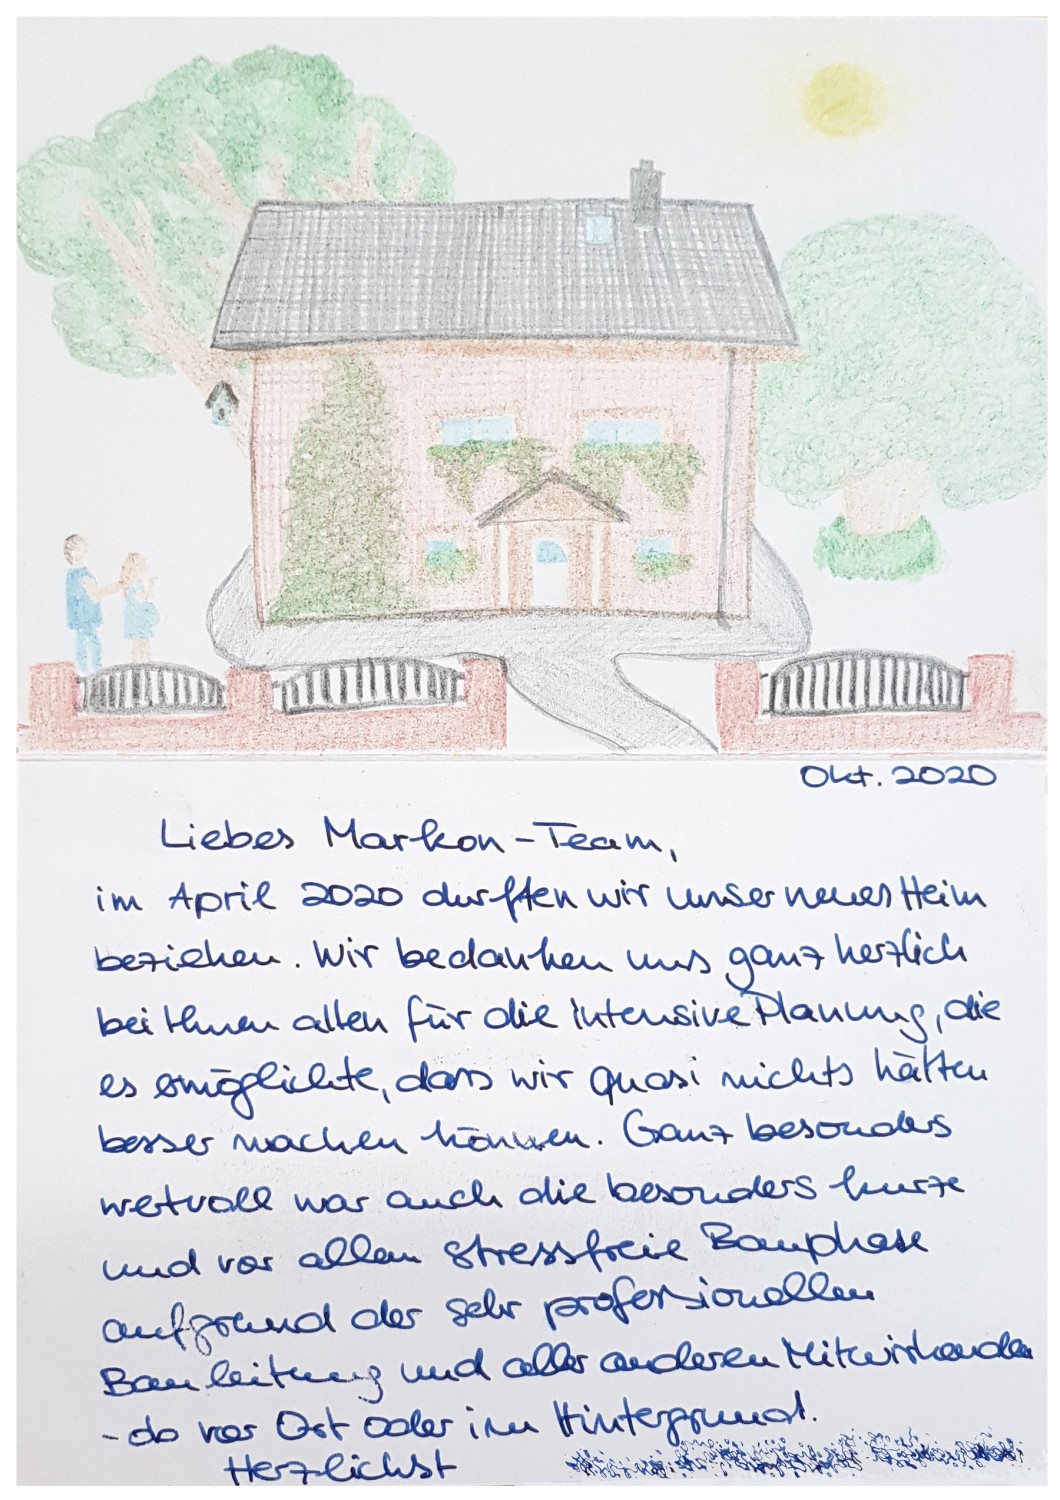 Okt. 2020
Liebes Markon-Team,
im April 2020 durften wir unser neues Heim
beziehen. Wir bedanken uns ganz herzlich
bei Ihnen allen für die intensive Planung, die
es ermöglichte, dass wir quasi nichts hätten
besser machen können. Ganz besonders
wertvoll war auch die besonders kurze
und vor allem stressfreie Bauphase
aufgrund der sehr professionellen
Bauleitung und aller anderen Mitwirkenden
- do vor Ort oder im Hintergrund.
Herzlichst